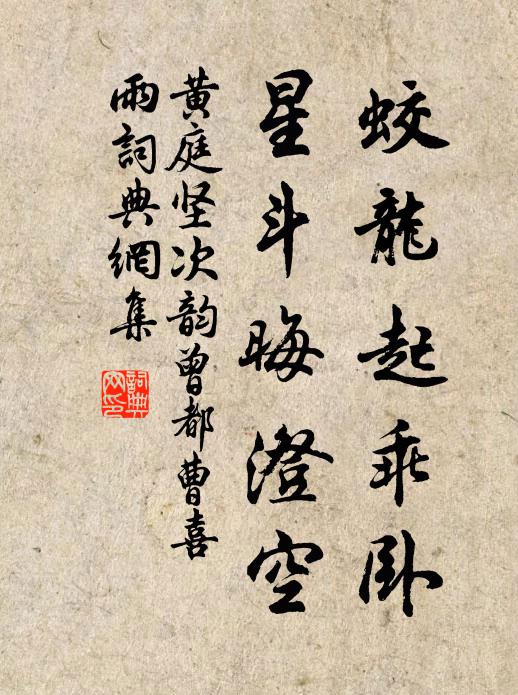 蛟龍起乖卧
星斗晦澄空
黄庭坚次韵曾都曹喜
雨詞典網集
詞典
网印